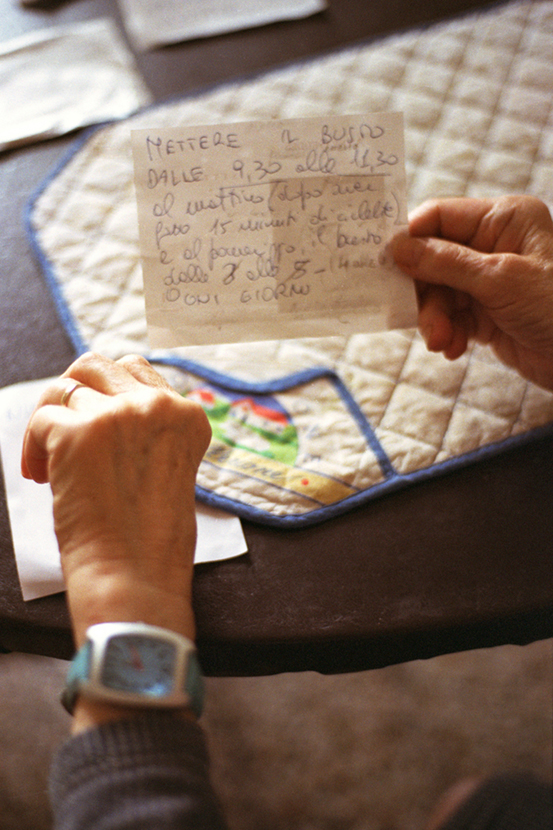 METTERE IL BUSTO
DALLE 9,30 alle 11,30
al mattino (dopo aver
fatto 15 minuti di ciclette)
e al pomeriggio il busto
dalle 3 alle 5-
OGNI GIORNO